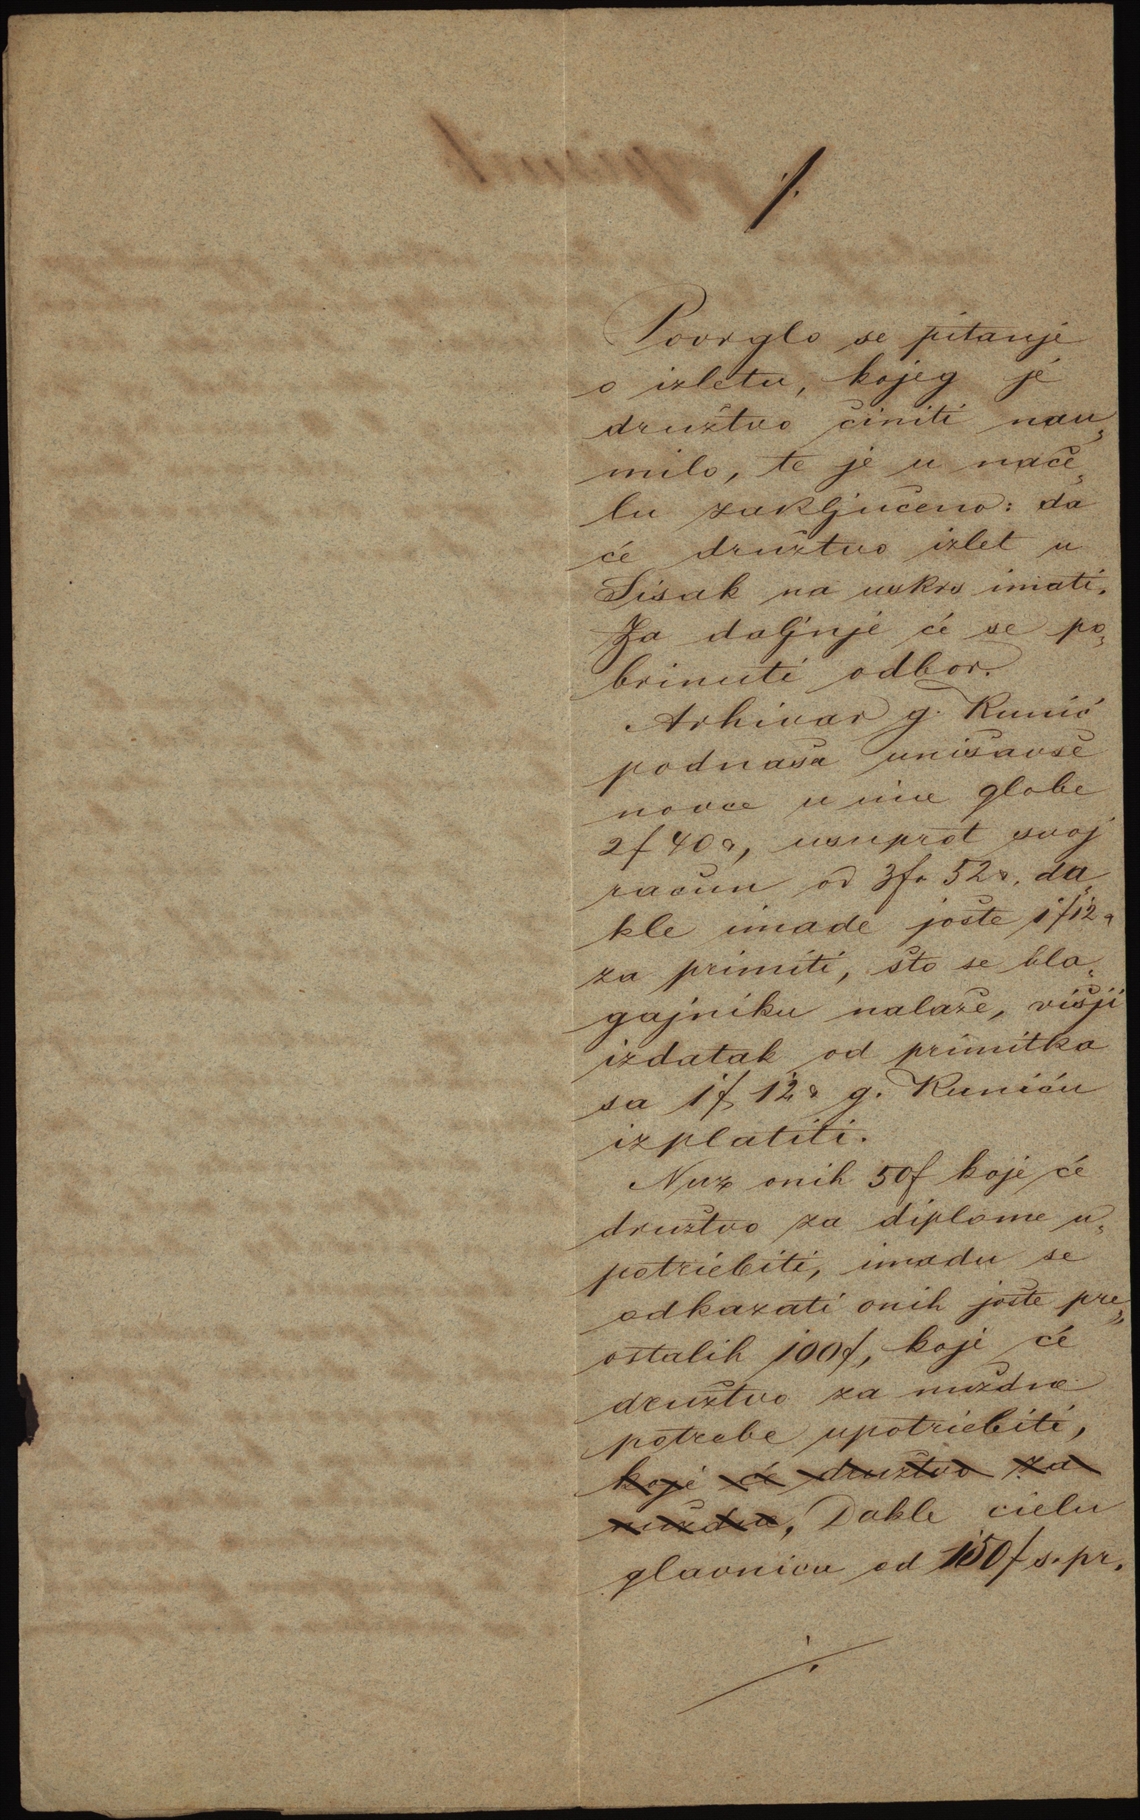 ./.
Povrglo se pitanje
o izletu, kojeg je
družtvo činiti nau„
milo, te je u nače„
lu zaključeno: da
će družtvo izlet u
Sisak na uskrs imati.
Za daljnje će se po„
brinuti odbor.
Arhivar g. Kunić
podnaša unišavše
novce u ime globe
2f 40, usuprot svoj
račun od 3f. 52. da„
kle imade jošte 1f 12
za primiti, što se bla„
gajniku nalaže, višji
izdatak od primitka
sa 1f 12 g. Kuniću
izplatiti.
Nuz onih 50f koje će
družtvo za diplome u„
potriebiti, imadu se
odkazati onih jošte pre„
ostalih 100f, koje će
družtvo za nuždne
potrebe upotriebiti,
koje će družtvo za
nuždne, Dakle cielu
glavnicu od 150f s. pr.
./.